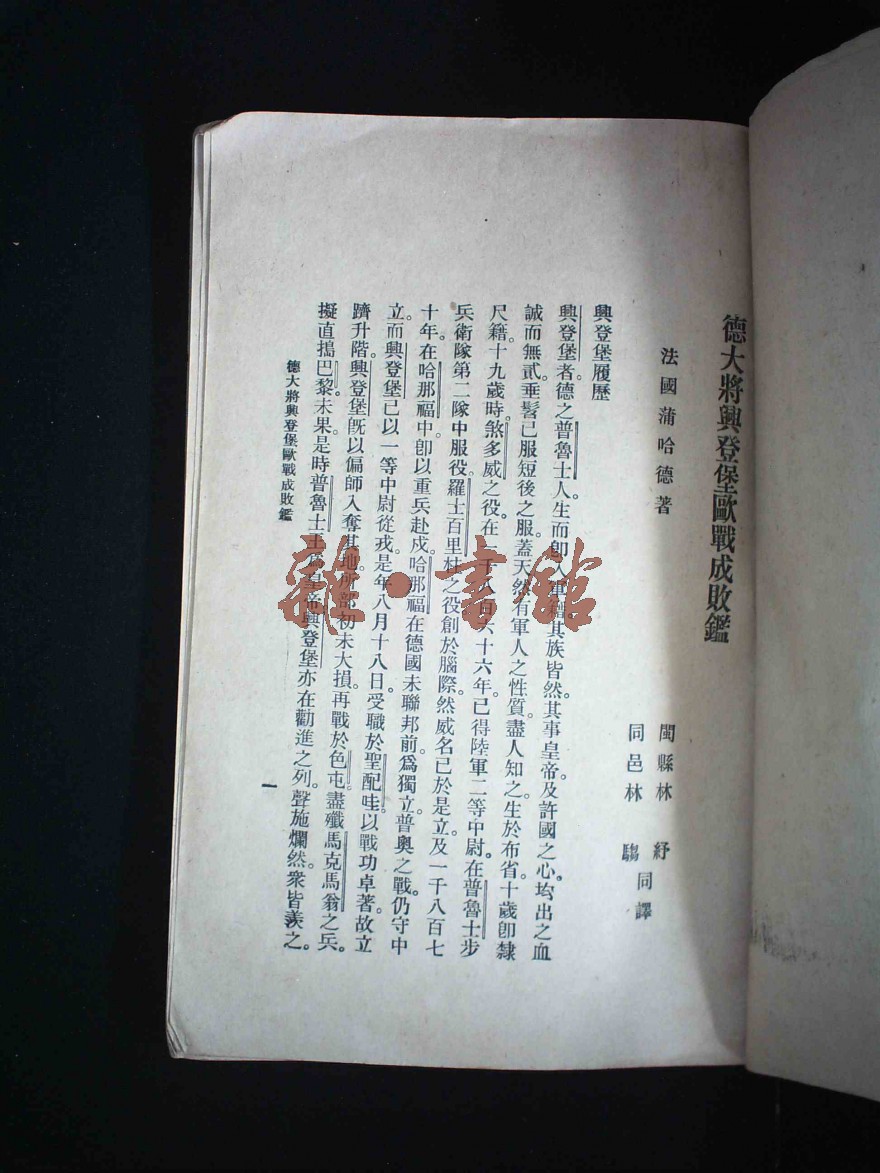 德大將興登堡歐戰成敗鑑
法國蒲哈德著
閩縣林 紓
同邑林 騶
同譯
興登堡履歷
興登堡者德之普魯士人生而卽入軍籍其族皆然其事皇帝及許國之心均出之血
誠而無貳垂髫已服短後之服蓋天然有軍人之性質盡人知之生於布省十歲卽隸
尺籍十九歲時煞多威之役在一千八百六十六年已得陸軍二等中尉在普魯士步
兵衛隊第二隊中服役羅士百里杜之役創於腦際然威名已於是立及一千八百七
十年在哈那福中卽以重兵赴戍哈那福在德國未聯邦前爲獨立普奧之戰仍守中
立而興登堡已以一等中尉從戎是年八月十八日受職於聖配哇以戰功卓著故立
躋升階興登堡旣以偏師入奪其地所部初未大損再戰於色屯盡殲馬克馬翁之兵
擬直搗巴黎未果是時普魯士王爲皇帝興登堡亦在勸進之列聲施爛然衆皆羨之
德大將興登堡歐戰成敗鑑
一
龍·書館